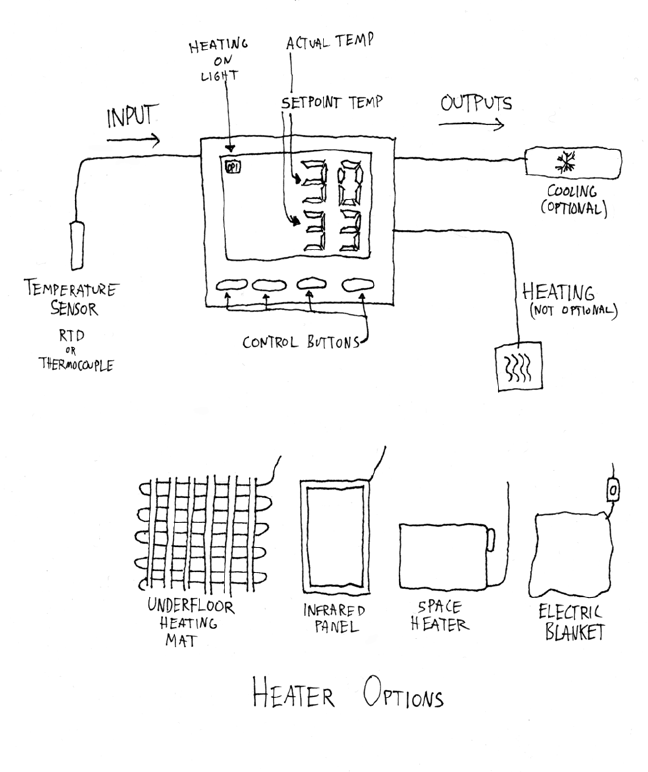 HEATING
ON
LIGHT
ACTUAL TEMP
SETPOINT TEMP
INPUT
OUTPUTS
30
33
COOLING
(OPTIONAL)
TEMPERATURE
SENSOR
RTD
OR
THERMOCOUPLE
HEATING
(NOT OPTIONAL)
CONTROL BUTTONS
UNDERFLOOR
HEATING
MAT
INFRARED
PANEL
SPACE
HEATER
ELECTRIC
BLANKET
HEATER OPTIONS